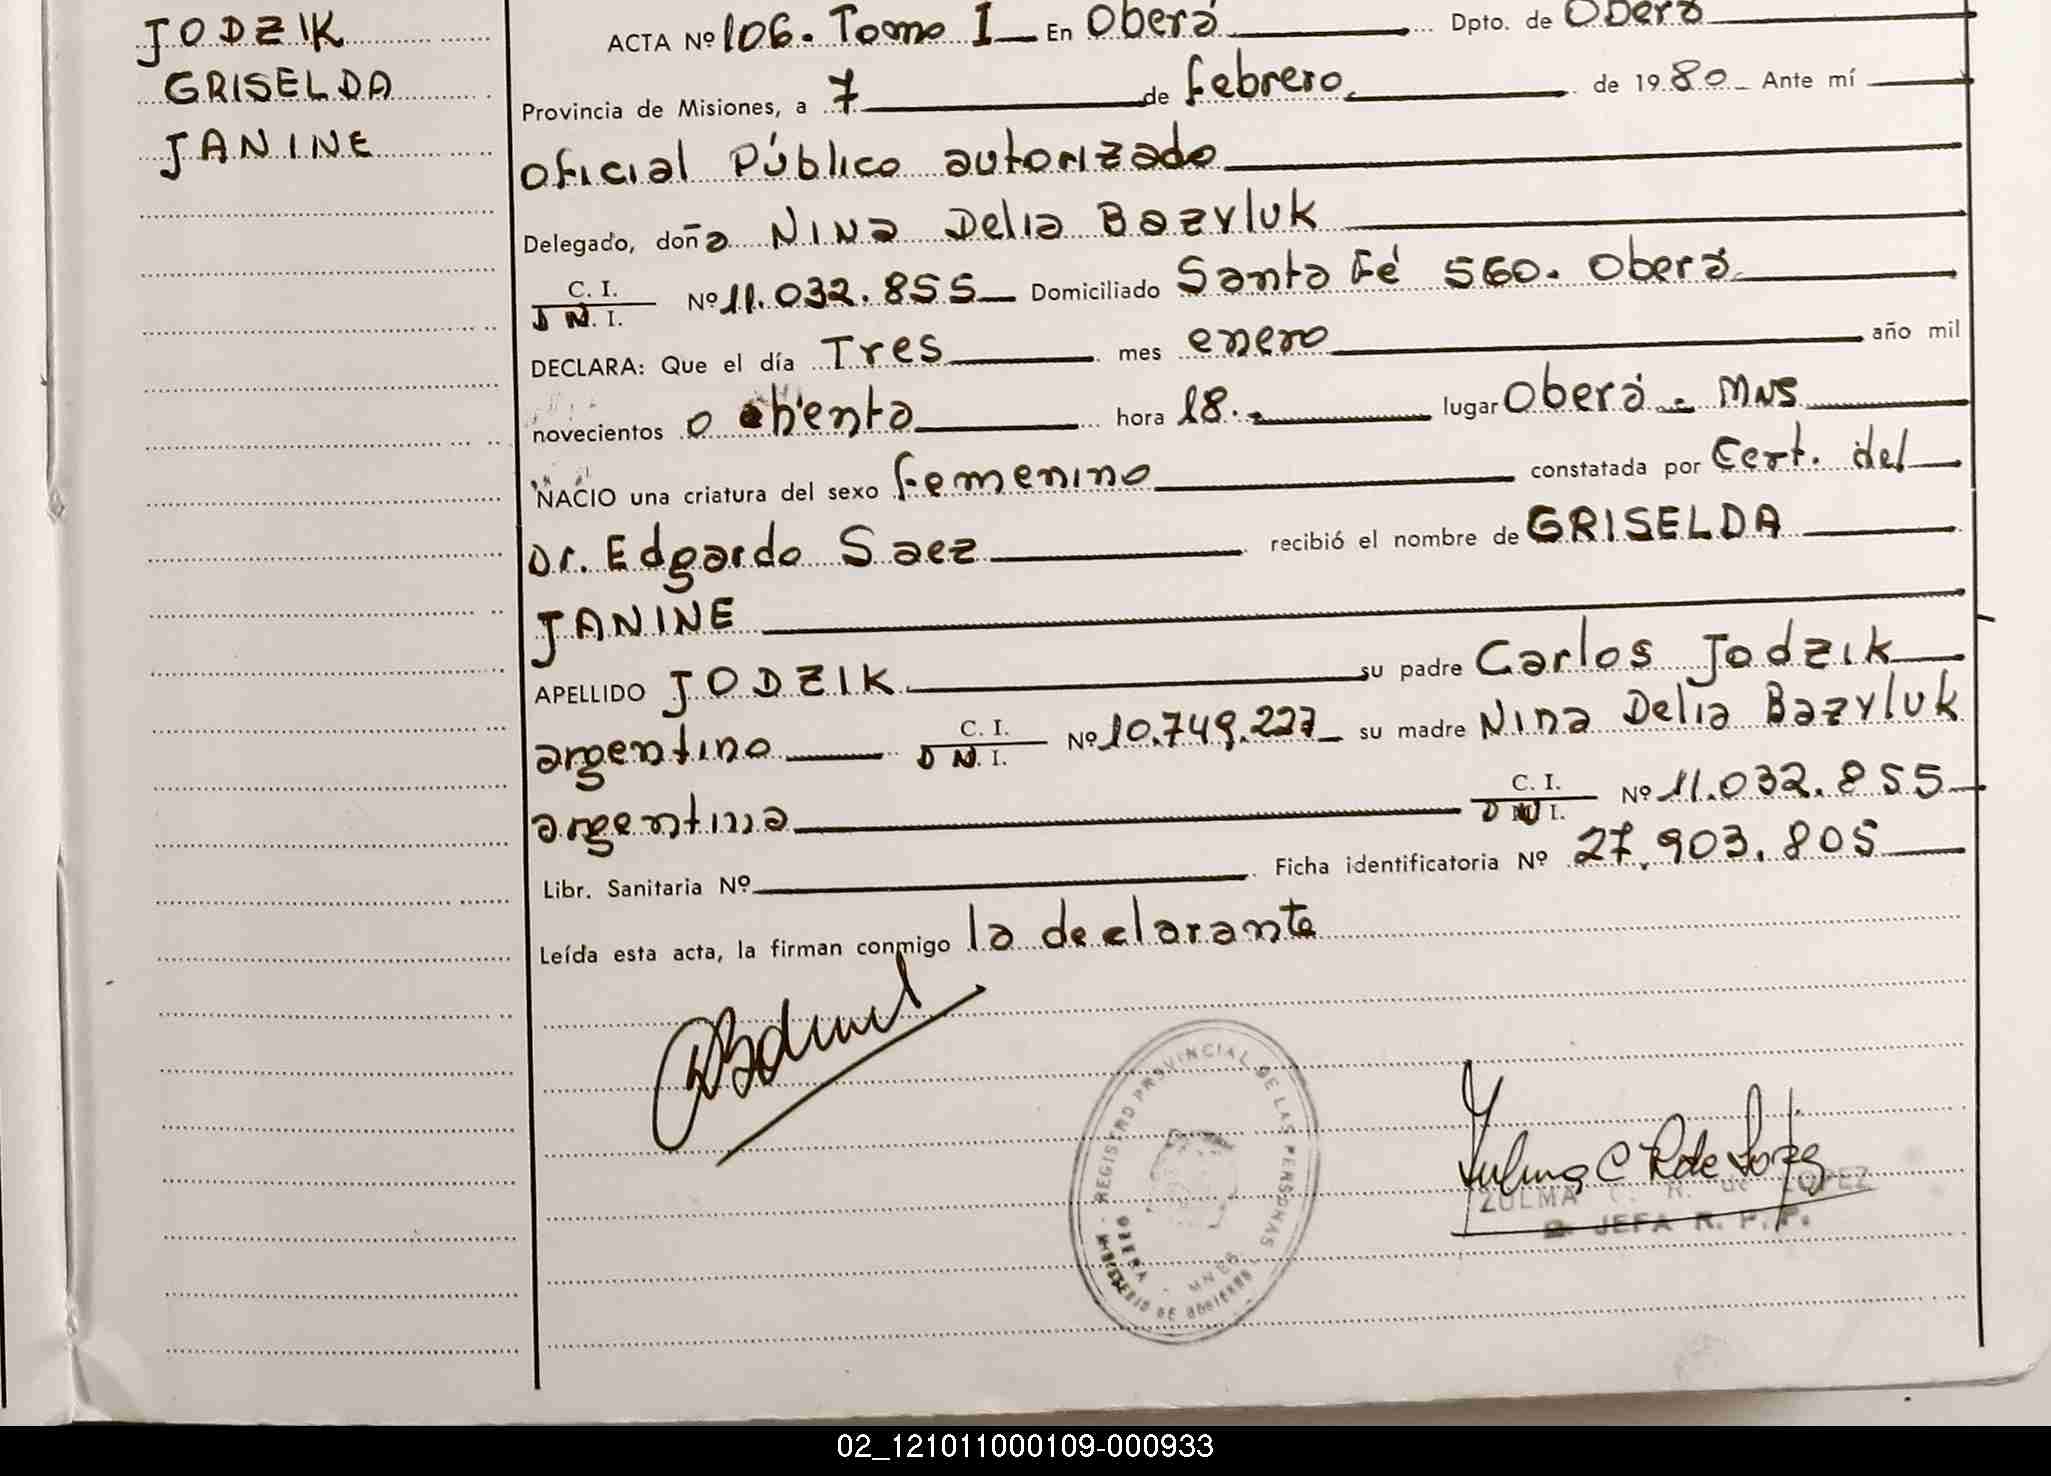 JODZIK
GRISELDA
JANINE
ACTA Nº 106. Tomo I En Oberá Dpto. de Oberá
Provincia de Misiones, a 7 de febrero de 1980 Ante mí
Oficial Público autorizado
Delegado, doña Nina Delia Bazyluk
C. I.
D N. I. Nº 11.032.855 Domiciliado Santa Fé 560. Oberá
DECLARA: Que el día Tres mes enero año mil
novecientos ochenta hora 18.- lugar Oberá - MNS
NACIO una criatura del sexo femenino constatada por Cert. del
Dr. Edgardo Saez recibió el nombre de GRISELDA
JANINE
APELLIDO JODZIK su padre Carlos Jodzik
argentino C. I. D N. I. Nº 10.749.227 su madre Nina Delia Bazyluk
argentina C. I. D N I. Nº 11.032.855
Libr. Sanitaria Nº Ficha identificatoria Nº 27.903.805
Leída esta acta, la firman conmigo la declarante
REGISTRO PROVINCIAL DE LAS PERSONAS
OBERA - MNES
MINISTERIO DE GOBIERNO
Zulma C R de Lopez
ZULMA C. R. de LOPEZ
JEFA R. P. P.
02_121011000109-000933